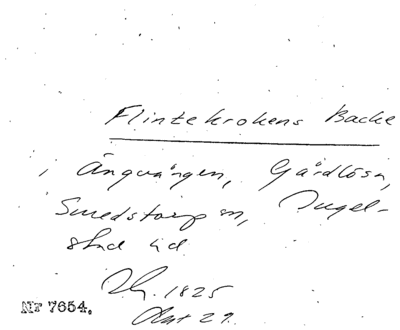 Flintekrokens Backe
i Ängavången, Gårdlösa,
Smedstorp sn, Ingel-
stad hd
1825
29.
Nr 7654.